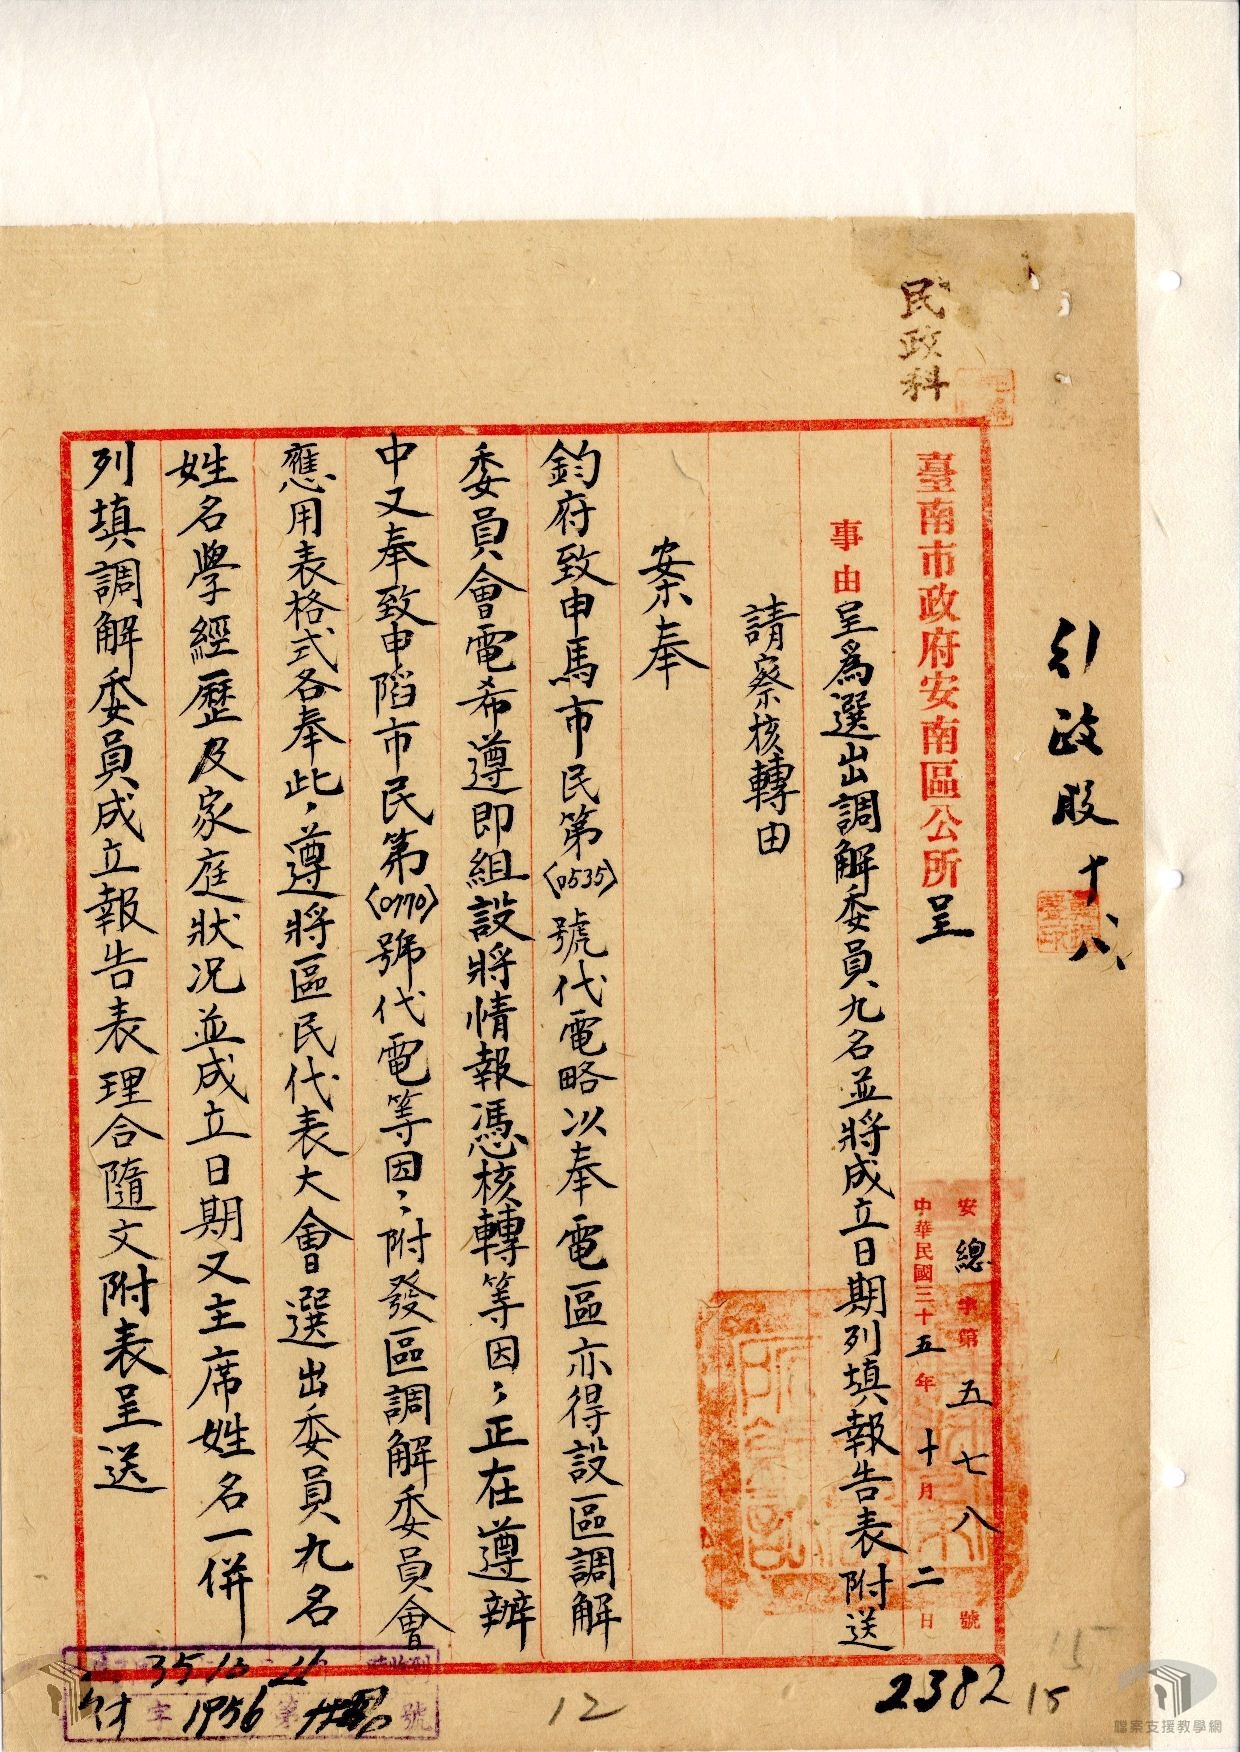 民政科
行政股 十八、
臺南市政府安南區公所 呈
安總字第五七八號
中華民國三十五年十月二日
事由 呈為選出調解委員九名並將成立日期列填報告表附送
請察核轉由
案奉
鈞府致申馬市民第〈0535〉號代電略以奉電區亦得設區調解
委員會電希遵即組設將情報憑核轉等因；正在遵辦
中又奉致申陷市民第〈0770〉號代電等因；附發區調解委員會
應用表格式各奉此，遵將區民代表大會選出委員九名
姓名學經歷及家庭狀況並成立日期又主席姓名一併
列填調解委員成立報告表理合隨文附表呈送
2382
15
15
12
35 10 21
附 字 1956 第 號
檔案支援教學網